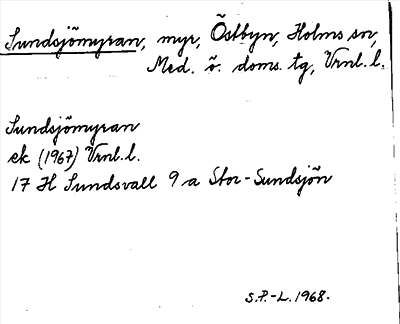 Sundsjömyran, myr, Östbyn, Holms sn,
Med. ö. doms. tg, Vrnl. l.
Sundsjömyran
ek (1967) Vrnl. l.
17 H Sundsvall 9 a Stor-Sundsjön
S.P.-L. 1968.